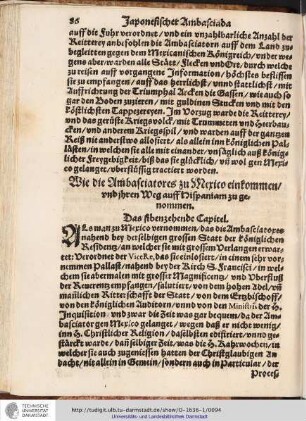 86 Japonesischer Ambasciada
auff die Fuhr verordnet / vnd ein vnzahlbarliche Anzahl der
Reitterey anbefohlen die Ambasciatorn auff dem Land zu-
begleitten gegen dem Mexicanischen Königreich / vnder we-
gens aber / warden alle Stätt / Flecken vnd Ort / durch welche
zu reisen auff vorgangene Information / höchstes beflissen
sie zu empfangen / auff das herrlichst / vnnd stattlichst / mit
Auffrichtung der Triumphal Arcken die Gassen / wie auch so
gar den Boden zuzieren / mit guldinen Stucken vnd mit den
köstlichsten Tappezereyen. Im Vorzug warde die Reitterey /
vnd das gerüste Kriegsvolck / mit Trummeten vnd Heerbau-
cken / vnd anderem Kriegsspil / vnd warden auff der gantzen
Reiß nie anderstwo allosiert / als allein inn königlichen Pal-
lästen / in welchen sie alle mit einander / vnsäglich auß königk-
licher Freygebigkeit / biß das sie glücklich / vñ wol gen Mexi-
co gelanget / überflüssig tractiert worden.
Wie die Ambasciatores zu Mexico einkommen /
vnd ihren Weg auff Hispaniam zu ge-
nommen.
Das sibenzehende Capitel.
Als man zu Mexico vernommen / das die Ambasciatores
nahend bey derselbigen grossen Statt der königlichen
Residentz / an welcher sie mit grossem Verlangen erwar-
tet: Verordnet der Viceke, das sie einlosiert / in einem sehr vor-
nemmen Pallast / nahend bey der Kirch S. Francisci / in wel-
chem sie abermalen mit grosser Magnificentz / vnd Vberfluß
der Rewerentz empfangen / salutiert / von dem hohen Adel / vñ
manlichen Ritterschafft der Statt / von dem Ertzbischoff /
von den königlichen Auditorn / vnnd von den Ministris der H.
Inquisition / vnd zwar die Zeit was gar bequem / da der Am-
basciator gen Mexico gelanget / wegen daß er nicht wenig /
inn H. Christlicher Religion / daselbsten edificiert / vnnd ge-
stärckt warde / dañ selbiger Zeit / was die H. Karwochen / in
welcher sie auch zugeniessen hatten der Christglaubigen An-
dacht / nit allein in Gemein / sondern auch in Particular / der
Process
TECHNISCHE UNIVERSITÄT DARMSTADT
http://tudigit.ulb.tu-darmstadt.de/show/G-1636-1/0094
Universitäts- und Landesbibliothek Darmstadt